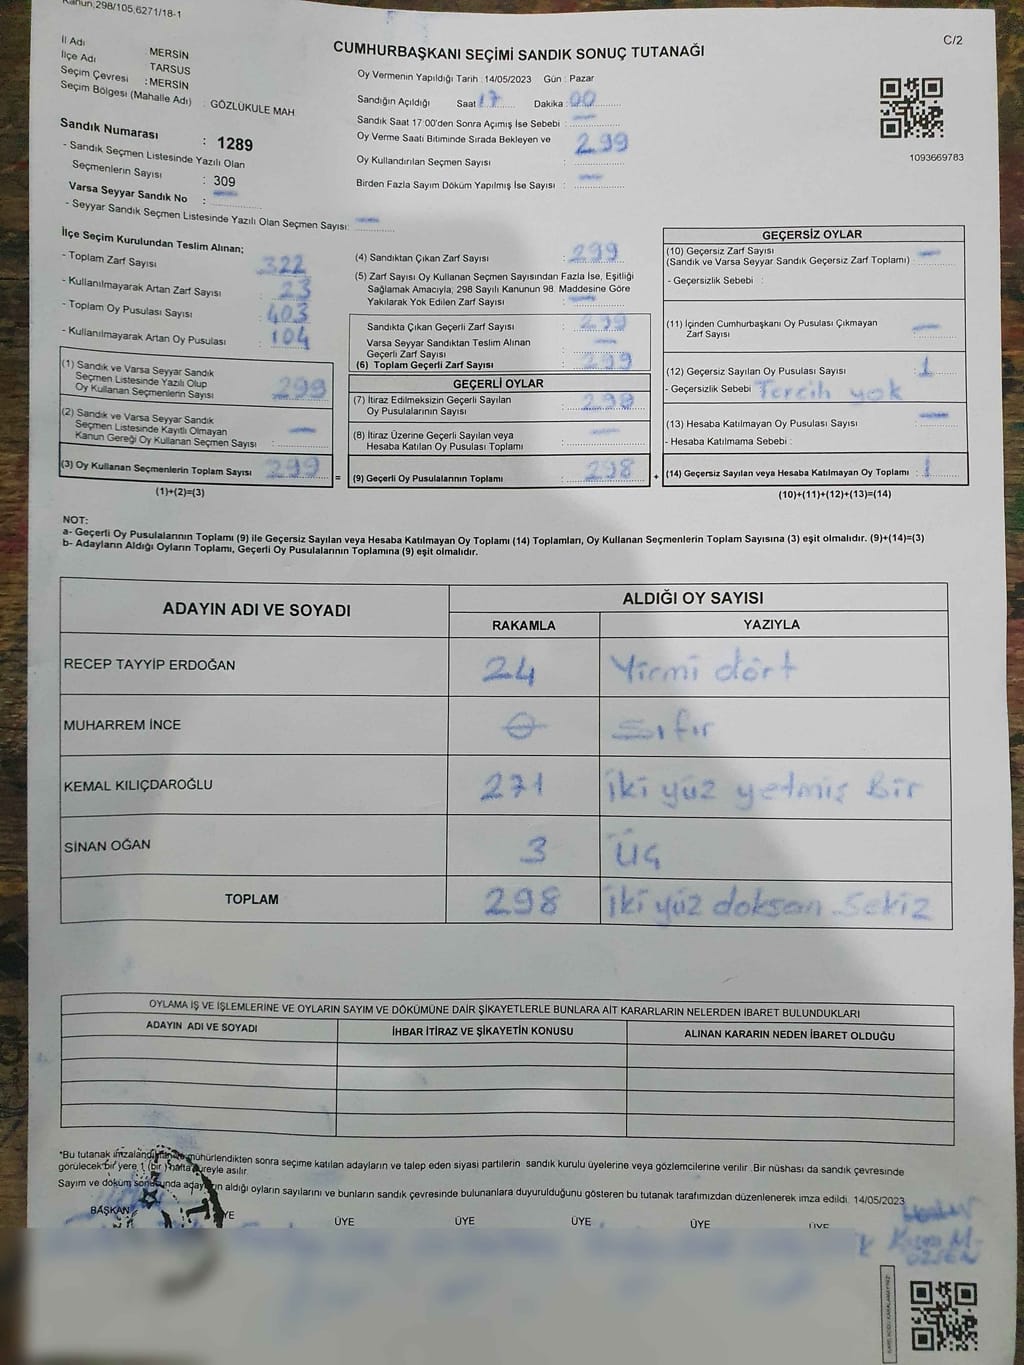 Kanun,298/105,6271/18-1
C/2
CUMHURBAŞKANI SEÇİMİ SANDIK SONUÇ TUTANAĞI
İl Adı : MERSİN
İlçe Adı : TARSUS
Seçim Çevresi : MERSİN
Seçim Bölgesi (Mahalle Adı) : GÖZLÜKULE MAH
Sandık Numarası : 1289
- Sandık Seçmen Listesinde Yazılı Olan
Seçmenlerin Sayısı : 309
Varsa Seyyar Sandık No : —
- Seyyar Sandık Seçmen Listesinde Yazılı Olan Seçmen Sayısı: —
Oy Vermenin Yapıldığı Tarih :14/05/2023 Gün : Pazar
Sandığın Açıldığı Saat :17 Dakika :00
Sandık Saat 17:00'den Sonra Açımış İse Sebebi : —
Oy Verme Saati Bitiminde Sırada Bekleyen ve
Oy Kullandırılan Seçmen Sayısı : 299
Birden Fazla Sayım Döküm Yapılmış İse Sayısı : —
1093669783
İlçe Seçim Kurulundan Teslim Alınan;
- Toplam Zarf Sayısı : 322
- Kullanılmayarak Artan Zarf Sayısı : 23
- Toplam Oy Pusulası Sayısı : 403
- Kullanılmayarak Artan Oy Pusulası : 104
(1) Sandık ve Varsa Seyyar Sandık
Seçmen Listesinde Yazılı Olup
Oy Kullanan Seçmenlerin Sayısı : 299
(2) Sandık ve Varsa Seyyar Sandık
Seçmen Listesinde Kayıtlı Olmayan
Kanun Gereği Oy Kullanan Seçmen Sayısı : —
(3) Oy Kullanan Seçmenlerin Toplam Sayısı : 299
(1)+(2)=(3)
(4) Sandıktan Çıkan Zarf Sayısı : 299
(5) Zarf Sayısı Oy Kullanan Seçmen Sayısından Fazla İse, Eşitliği
Sağlamak Amacıyla, 298 Sayılı Kanunun 98. Maddesine Göre
Yakılarak Yok Edilen Zarf Sayısı : —
Sandıkta Çıkan Geçerli Zarf Sayısı : 299
Varsa Seyyar Sandıktan Teslim Alınan
Geçerli Zarf Sayısı : —
(6) Toplam Geçerli Zarf Sayısı : 299
GEÇERLİ OYLAR
(7) İtiraz Edilmeksizin Geçerli Sayılan
Oy Pusulalarının Sayısı : 298
(8) İtiraz Üzerine Geçerli Sayılan veya
Hesaba Katılan Oy Pusulası Toplamı : —
= (9) Geçerli Oy Pusulalarının Toplamı : 298 +
GEÇERSİZ OYLAR
(10) Geçersiz Zarf Sayısı
(Sandık ve Varsa Seyyar Sandık Geçersiz Zarf Toplamı) : —
- Geçersizlik Sebebi :
(11) İçinden Cumhurbaşkanı Oy Pusulası Çıkmayan
Zarf Sayısı : —
(12) Geçersiz Sayılan Oy Pusulası Sayısı : 1
- Geçersizlik Sebebi : Tercih yok
(13) Hesaba Katılmayan Oy Pusulası Sayısı : —
- Hesaba Katılmama Sebebi :
(14) Geçersiz Sayılan veya Hesaba Katılmayan Oy Toplamı : 1
(10)+(11)+(12)+(13)=(14)
NOT:
a- Geçerli Oy Pusulalarının Toplamı (9) ile Geçersiz Sayılan veya Hesaba Katılmayan Oy Toplamı (14) Toplamları, Oy Kullanan Seçmenlerin Toplam Sayısına (3) eşit olmalıdır. (9)+(14)=(3)
b- Adayların Aldığı Oyların Toplamı, Geçerli Oy Pusulalarının Toplamına (9) eşit olmalıdır.
ADAYIN ADI VE SOYADI ALDIĞI OY SAYISI
RAKAMLA YAZIYLA
RECEP TAYYİP ERDOĞAN 24 Yirmi dört
MUHARREM İNCE 0 Sıfır
KEMAL KILIÇDAROĞLU 271 iki yüz yetmiş Bir
SİNAN OĞAN 3 Üç
TOPLAM 298 iki yüz doksan Sekiz
OYLAMA İŞ VE İŞLEMLERİNE VE OYLARIN SAYIM VE DÖKÜMÜNE DAİR ŞİKAYETLERLE BUNLARA AİT KARARLARIN NELERDEN İBARET BULUNDUKLARI
ADAYIN ADI VE SOYADI İHBAR İTİRAZ VE ŞİKAYETİN KONUSU ALINAN KARARIN NEDEN İBARET OLDUĞU
*Bu tutanak imzalandıktan ve mühürlendikten sonra seçime katılan adayların ve talep eden siyasi partilerin sandık kurulu üyelerine veya gözlemcilerine verilir. Bir nüshası da sandık çevresinde
görülecek bir yere 1 (bir) hafta süreyle asılır.
Sayım ve döküm sonucunda adayların aldığı oyların sayılarını ve bunların sandık çevresinde bulunanlara duyurulduğunu gösteren bu tutanak tarafımızdan düzenlenerek imza edildi. 14/05/2023
BAŞKAN ÜYE ÜYE ÜYE ÜYE ÜYE ÜYE